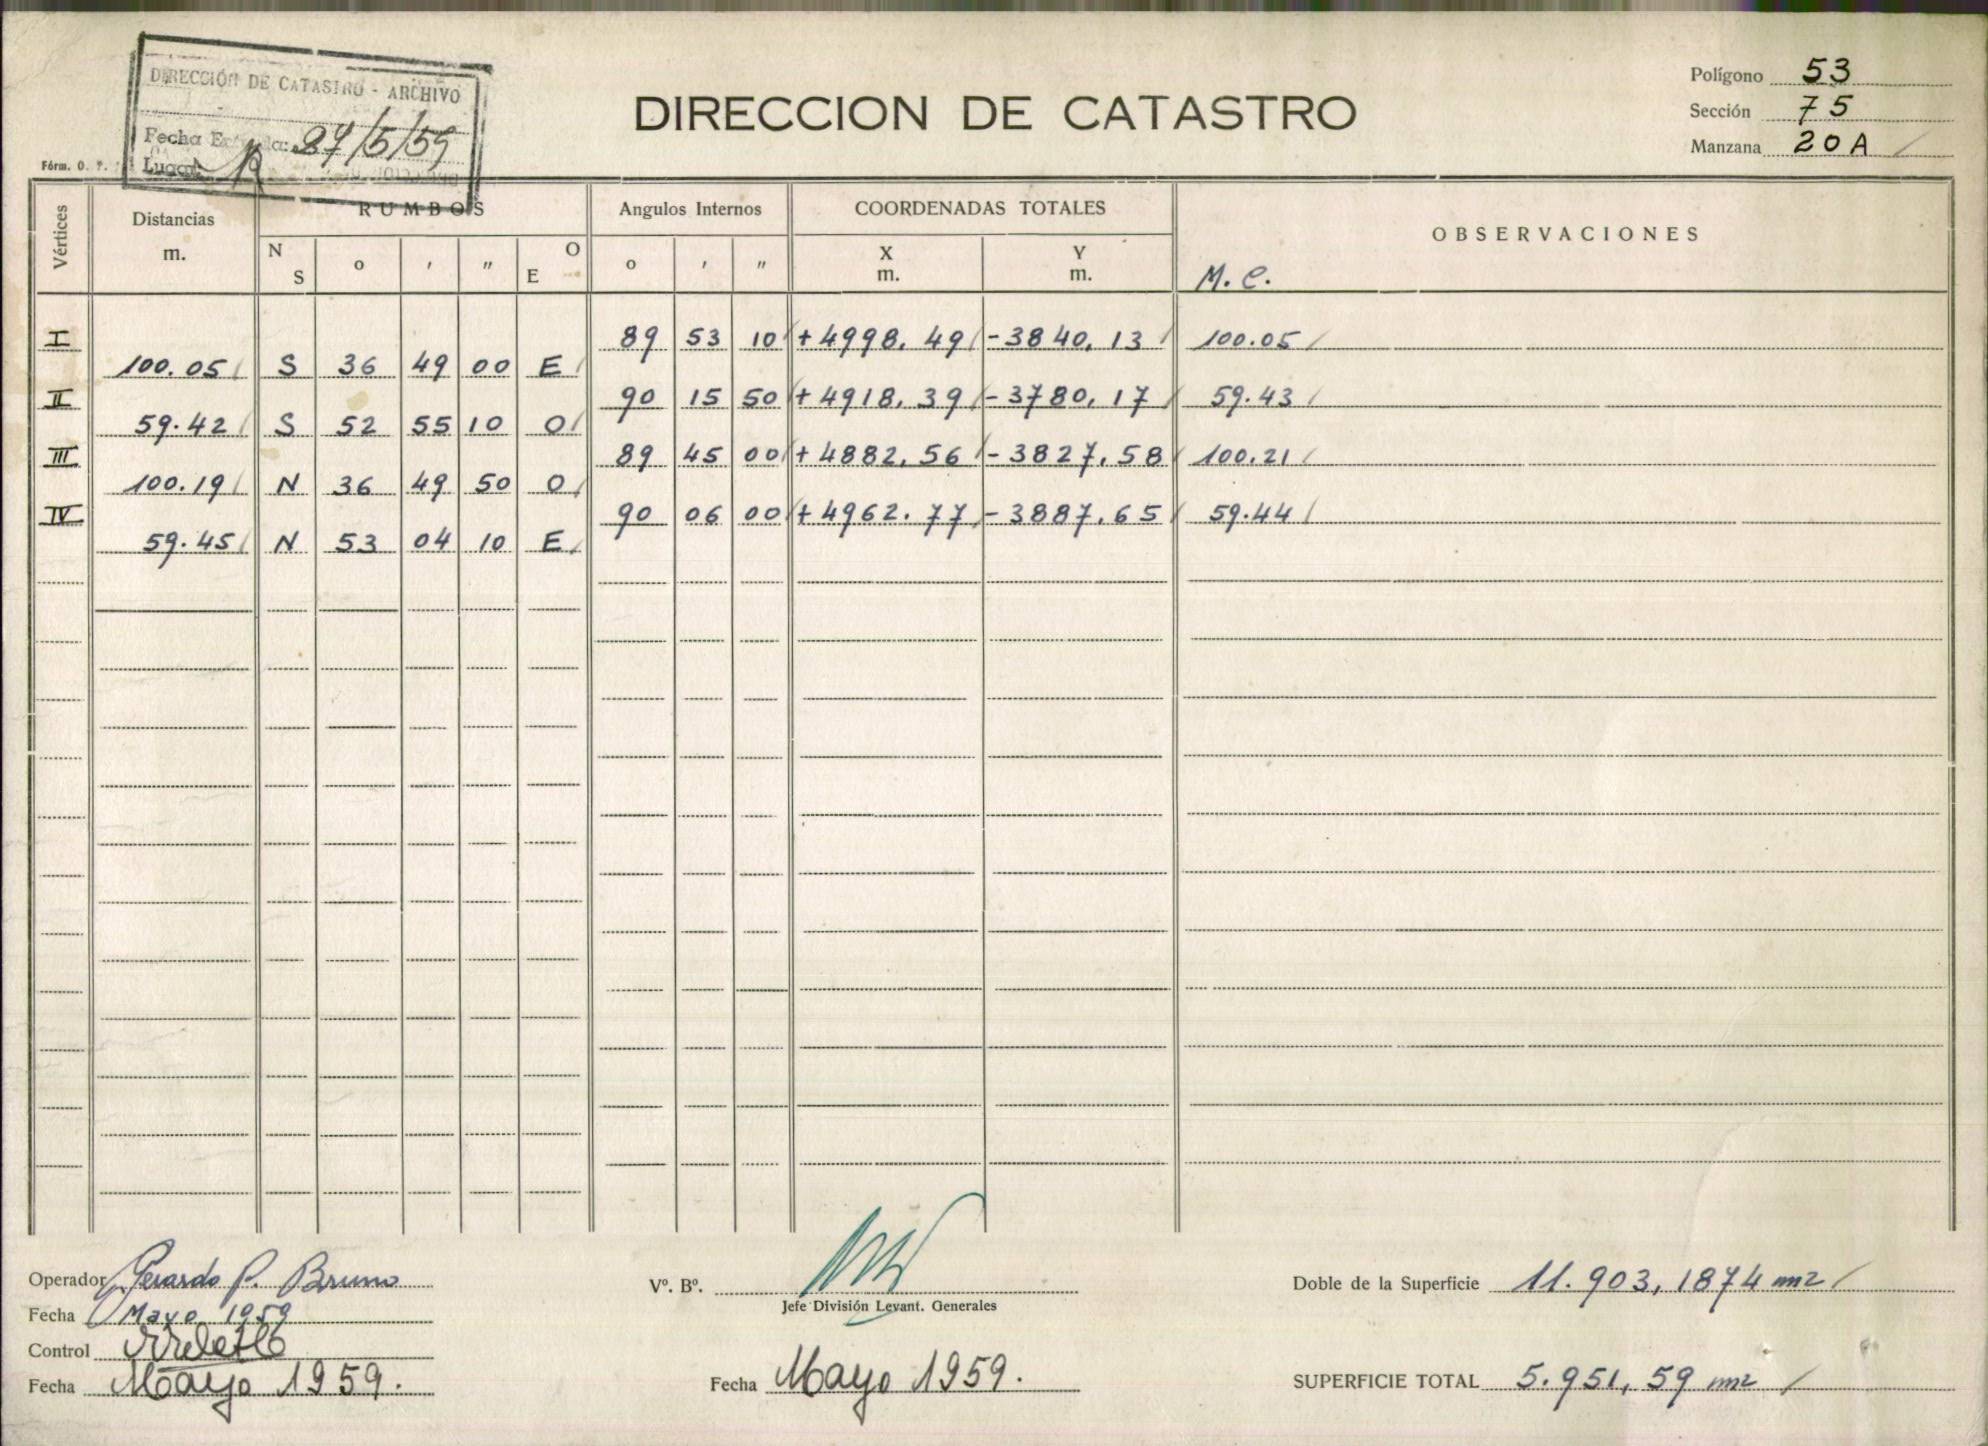 DIRECCIÓN DE CATASTRO - ARCHIVO
Fecha 27/5/59
Lugar
DIRECCION DE CATASTRO
Polígono 53
Sección 75
Manzana 20A
Fórm. O. P.
Vértices Distancias m. RUMBOS Angulos Internos COORDENADAS TOTALES OBSERVACIONES
N S o ' " O E o ' " X m. Y m. M.C.
I 89 53 10 +4998,49 -3840,13 100.05
100.05 S 36 49 00 E
II 90 15 50 +4918,39 -3780,17 59.43
59.42 S 52 55 10 O
III 89 45 00 +4882,56 -3827,58 100.21
100.19 N 36 49 50 O
IV 90 06 00 +4962.77 -3887,65 59.44
59.45 N 53 04 10 E
Operador Gerardo P. Bruno
Fecha Mayo 1959
Control
Fecha Mayo 1959.
Vº. Bº.
Jefe División Levant. Generales
Fecha Mayo 1959.
Doble de la Superficie 11.903,1874 m2
SUPERFICIE TOTAL 5.951,59 m2